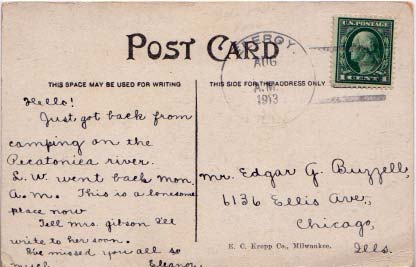 POST CARD
THIS SPACE MAY BE USED FOR WRITING
THIS SIDE FOR THE ADDRESS ONLY
AUG
A.M.
1913
U.S. POSTAGE
1 CENT 1
Hello!
Just got back from
camping on the
Pecatonica river.
L.W. went back mon.
a.m. This is a lonesome
place now
Tell mrs. gibson I'll
write to her soon.
I've missed you all so
much. Eleanor
Mr. Edgar G. Buzzell,
6136 Ellis Ave.,
Chicago,
Ills.
E. C. Kropp Co., Milwaukee.